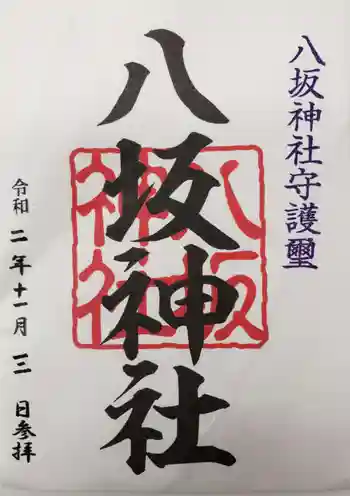 八坂神社守護璽
八坂神社
八坂
神社
令和二年十一月三日参拝